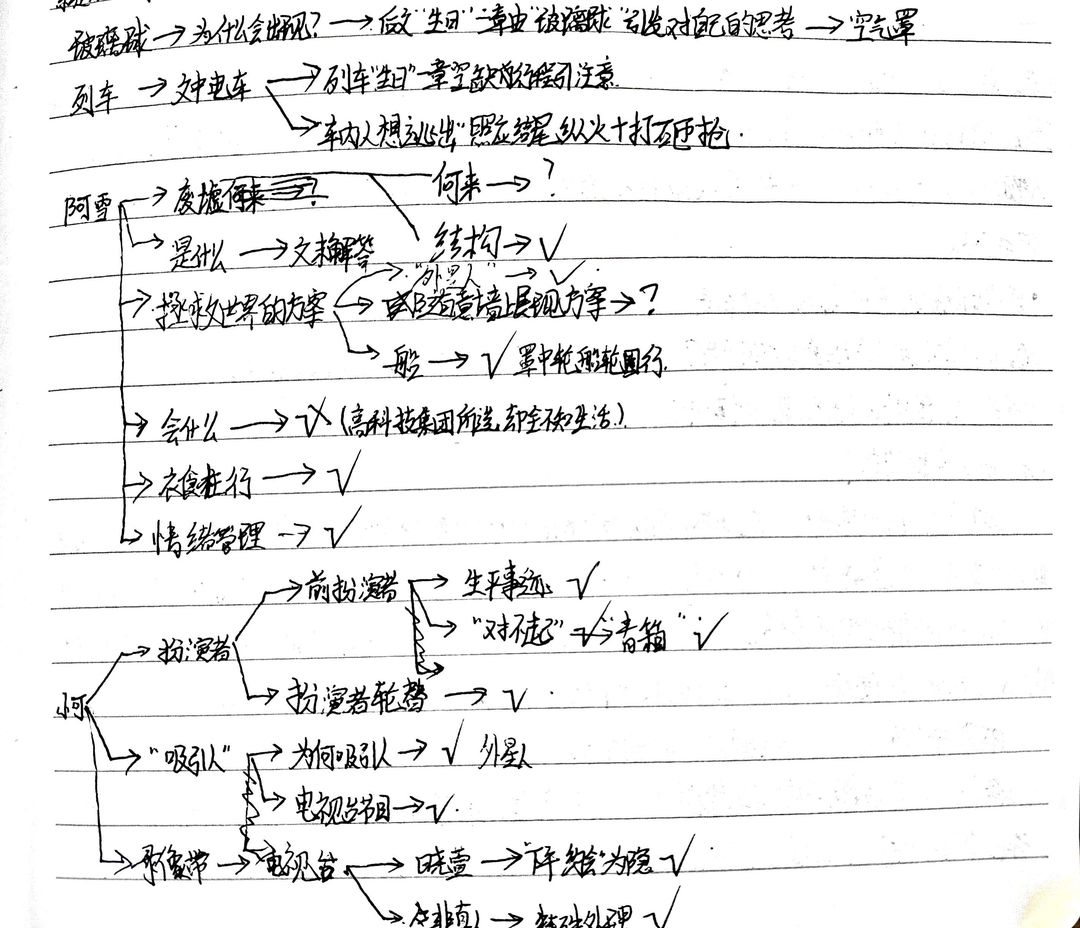 玻璃球→为什么会出现?→后文"生日"一章由"玻璃球"引发对自己的思考→空气罩
列车→文中电车→列车"生日"一章空缺的行程引注意.
→"车内人想逃出"照应结尾纵火+打砸抢.
阿雪→废墟何来 何来→?
结构→√
→是什么→文末解答
→拯救世界的方案→"外星人"→√.
墙上展现方案→?
→船→√ 罩中轮船轮回行.
→会什么→√×(高科技集团所选,却全不知生活.)
→衣食住行→√
→情绪管理→√
小河→扮演者→前扮演者→生平事迹√
→"对不起"√→"音箱"√
→扮演者轮替→√.
→"吸引人"→为何吸引人→√ 外星人
→电视台节目→√.
→录像带→电视台→晓萱→为隐√
→非真人→特殊处理√